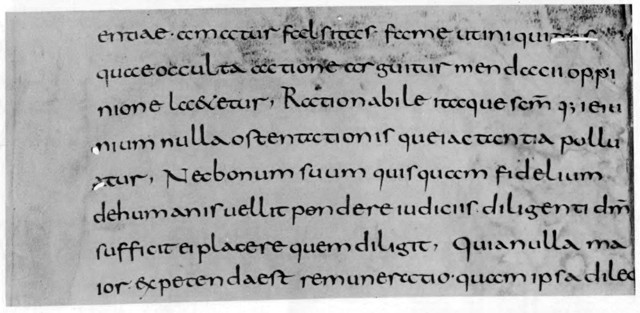 entiae · amatur falsitas fame ut iniquitas
quae occulta actione arguitur mendacii oppi
nione la&etur, Rationabile itaque scm̄ q; ieiu
nium nulla ostentationis que iactantia pollu
atur, Nec bonum suum quisquam fidelium
de humanis uellit pendere iudiciis · diligenti dm̄
sufficit ei placere quem diligit, Quia nulla ma
ior expetenda est remuneratio · quam ipsa dilec